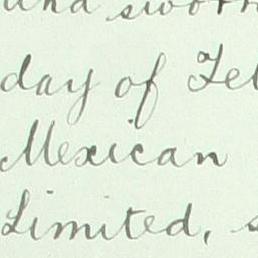 and sworn
day of Feb
Mexican
Limited, s